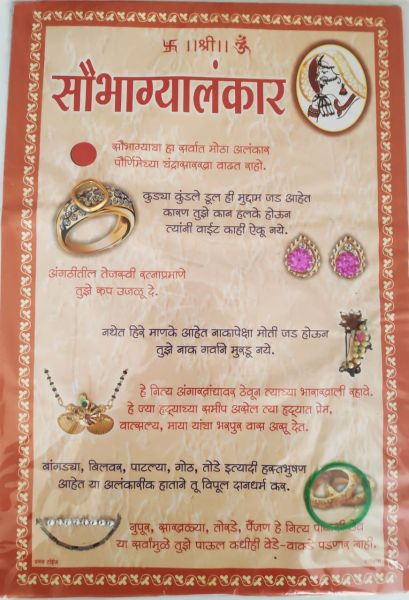 卐 ॥श्री॥ ॐ
सौभाग्यालंकार
सौभाग्याचा हा सर्वात मोठा अलंकार
पौर्णिमेच्या चंद्रासारखा वाढत राहो.
कुड्या कुंडले डूल ही मुद्दाम जड आहेत
कारण तुझे कान हलके होऊन
त्यांनी वाईट काही ऐकू नये.
अंगठीतील तेजस्वी रत्नाप्रमाणे
तुझे रूप उजळू दे.
नथेत हिरे माणके आहेत नाकापेक्षा मोती जड होऊन
तुझे नाक गर्वाने मुरडू नये.
हे नित्य अंगाखांद्यावर ठेवून त्याच्या भाराखाली रहावे.
हे ज्या हृदयाच्या समीप असेल त्या हृदयात प्रेम,
वात्सल्य, माया यांचा भरपुर वास असू देत.
बांगड्या, बिलवर, पाटल्या, गोठ, तोडे इत्यादी हस्तभुषण
आहेत या अलंकारीक हाताने तू विपूल दानधर्म कर.
नुपूर, साखळ्या, तोरडे, पैंजण हे नित्य
या सर्वांमुळे तुझे पाऊल कधीही वेडे-वाकडे पडणार नाही.